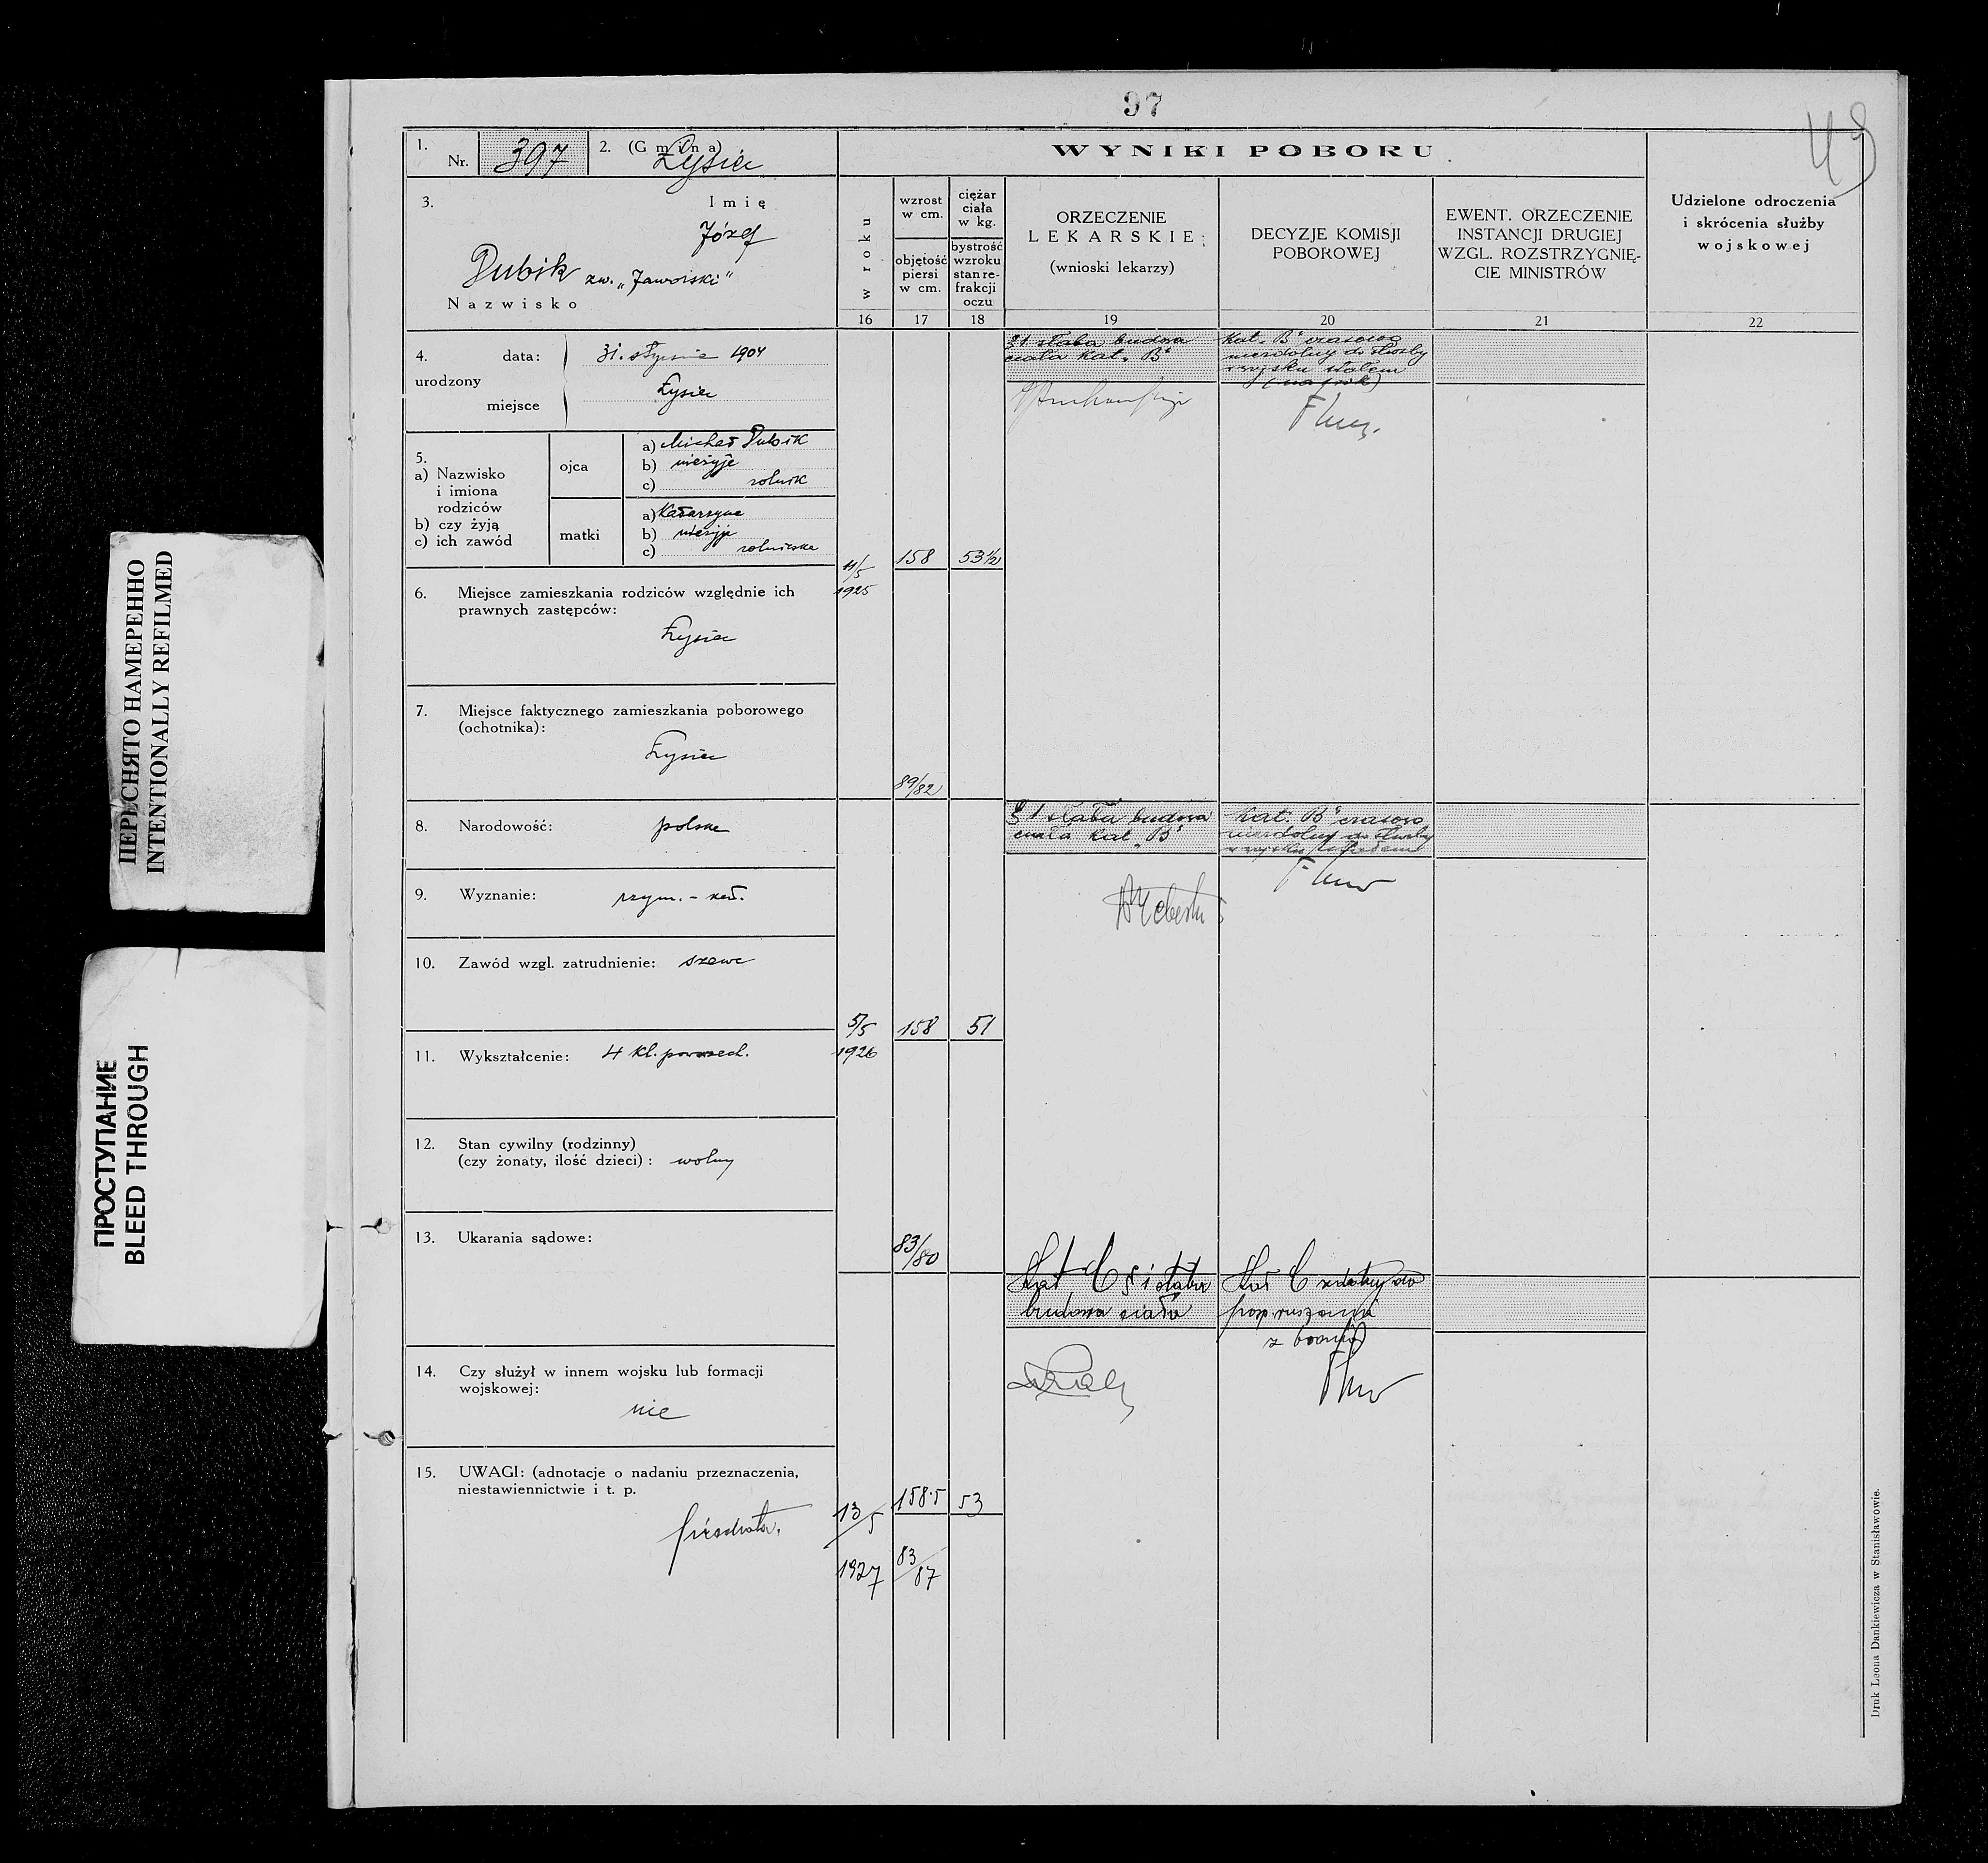 97
49
1.
Nr. 397
2. (Gmina)
Łysiec
WYNIKI POBORU
3.
Imię
Józef
Dubik zw. „Jaworski"
Nazwisko
w roku
wzrost w cm.
objętość piersi w cm.
ciężar ciała w kg.
bystrość wzroku stan re-frakcji oczu
ORZECZENIE
LEKARSKIE;
(wnioski lekarzy)
DECYZJE KOMISJI
POBOROWEJ
EWENT. ORZECZENIE
INSTANCJI DRUGIEJ
WZGL. ROZSTRZYGNIĘ-
CIE MINISTRÓW
Udzielone odroczenia
i skrócenia służby
wojskowej
16 17 18 19 20 21 22
4. data: 31. stycznia 1904
urodzony
miejsce Łysiec
5.
a) Nazwisko
i imiona
rodziców
b) czy żyją
c) ich zawód
ojca
a) Michał Dubik
b) nieżyje
c) rolnik
matki
a) Katarzyna
b) nieżyje
c) rolniczka
6. Miejsce zamieszkania rodziców względnie ich
prawnych zastępców:
Łysiec
7. Miejsce faktycznego zamieszkania poborowego
(ochotnika):
Łysiec
8. Narodowość: polska
9. Wyznanie: rzym.-kat.
10. Zawód wzgl. zatrudnienie: szewc
11. Wykształcenie: 4 kl. powszech.
12. Stan cywilny (rodzinny)
(czy żonaty, ilość dzieci): wolny
13. Ukarania sądowe:
14. Czy służył w innem wojsku lub formacji
wojskowej:
nie
15. UWAGI: (adnotacje o nadaniu przeznaczenia,
niestawiennictwie i t. p.
piechota.
11/5
1925
158
53 1/2
89/82
§1 słaba budowa
ciała kat. „B"
Kat. „B" czasowo
niezdolny do służby
w wojsku stałem
(na rok)
5/5
1926
158
51
83/80
§1 słaba budowa
ciała kat. „B"
Kat. „B" czasowo
niezdolny do służby
w wojsku
13/5
1927
158·5
53
83/87
Kat C § 1 słaba
budowa ciała
Kat C zdolny do
posp. ruszenia
z bronią
Druk Leona Dankiewicza w Stanisławowie.
ПЕРЕСНЯТО НАМЕРЕННО
INTENTIONALLY REFILMED
ПРОСТУПАНИЕ
BLEED THROUGH